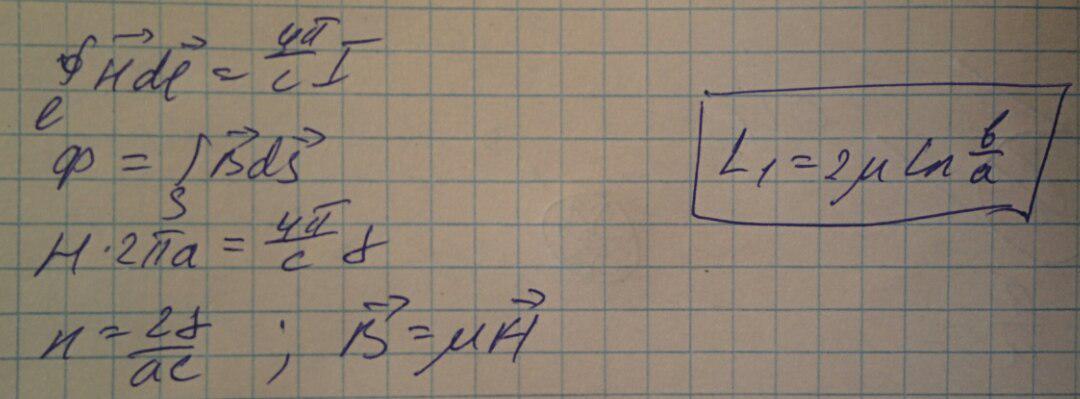 ∮_ℓ H⃗ dℓ⃗ = 4π/c I
Φ = ∫_S B⃗ dS⃗
H · 2πa = 4π/c J
H = 2J/ac ; B⃗ = μH⃗
L₁ = 2μ ln b/a